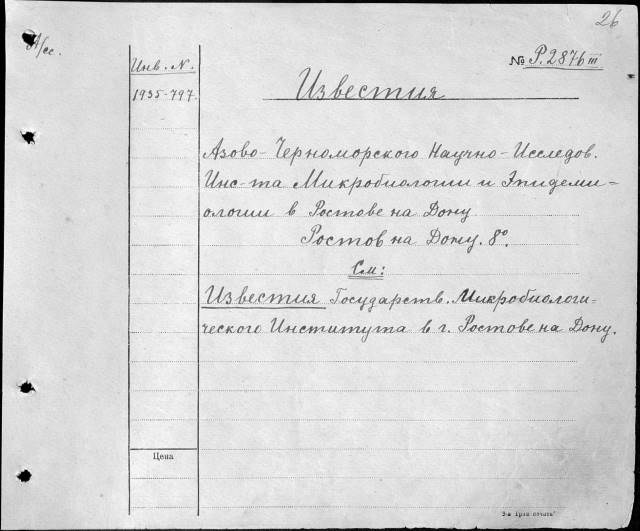 26
А/сс.
Инв. N.
1935-797.
№ Р.2876 III
Известия
Азово-Черноморского Научно-Исследов.
Инс-та Микробиологии и Эпидеми=
ологии в Ростове на Дону
Ростов на Дону. 8°.
См:
Известия Государств. Микробиологи=
ческого Института в г. Ростове на Дону.
Цена